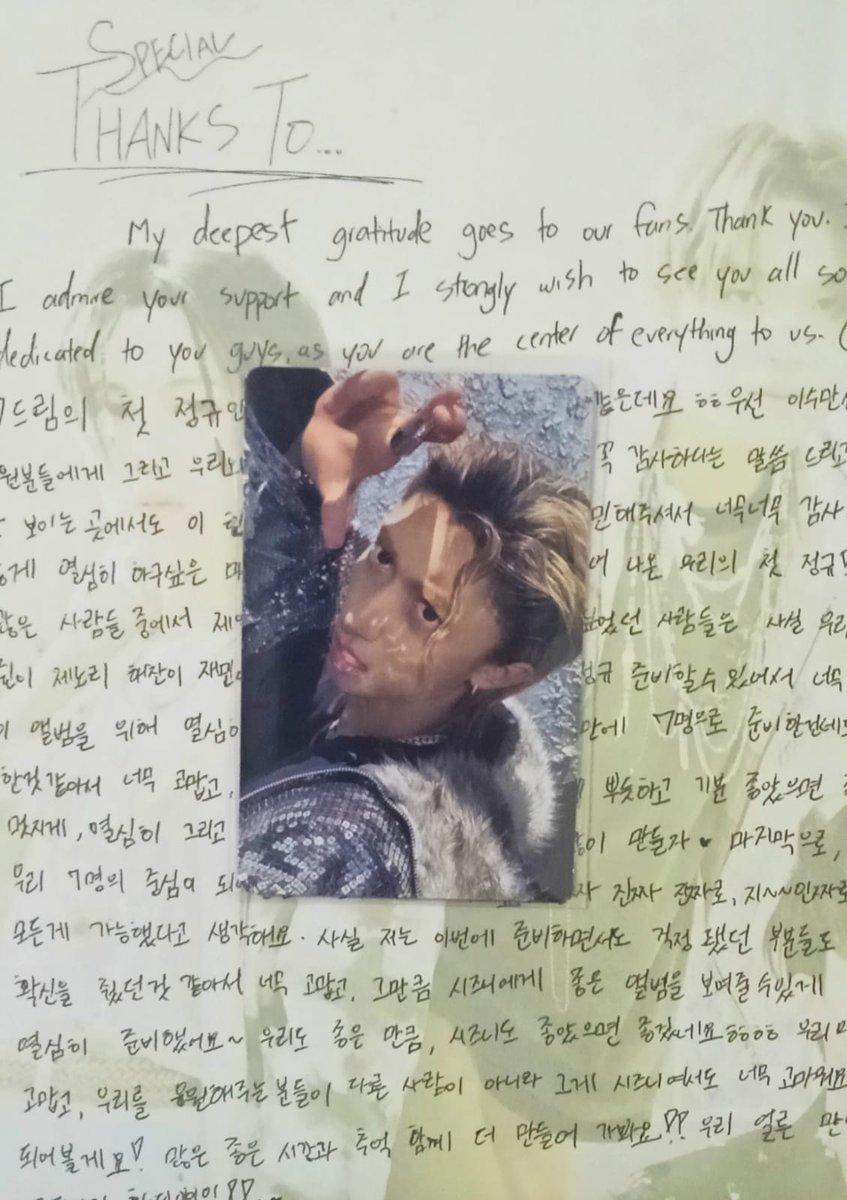 SPECIAL
THANKS TO...
My deepest gratitude goes to our fans. Thank you.
I admire your support and I strongly wish to see you all so
dedicated to you guys, as you are the center of everything to us. (
7드림의 첫 정규 같은데요 ㅎㅎ 우선 이수만
원분들에게 그리고 우리 꼭 감사하다는 말씀 드리고
보이는 곳에서도 이 해주셔서 너무너무 감사
열심히 하구싶은 나온 우리의 첫 정규
많은 사람들 중에서 제일 사람들은 사실 우리
제노리 해찬이 재민 준비할 수 있어서 너무
앨범을 위해 열심히 만에 7명으로 준비한건데
한것같아서 너무 고맙고, 뿌듯하고 기분 좋았으면
멋지게, 열심히 그리고 만들자 ♥ 마지막으로,
우리 7명의 중심이 되 진짜 진짜로, 지~~인짜로
모든게 가능했다고 생각해요. 사실 저는 이번에 준비하면서도 걱정 됐던 부분들도
확신을 줬던것 같아서 너무 고맙고, 그만큼 시즈니에게 좋은 앨범을 보여줄 수있게
열심히 준비했어요~ 우리도 좋은 만큼, 시즈니도 좋았으면 좋겠네요 ㅎㅎㅎㅎ 우리
고맙고, 우리를 응원해주는 분들이 다른 사람이 아니라 그게 시즈니여서도 너무 고마워요
되어볼게요! 많은 좋은 시간과 추억 함께 더 만들어 가봐요!? 우리 얼른